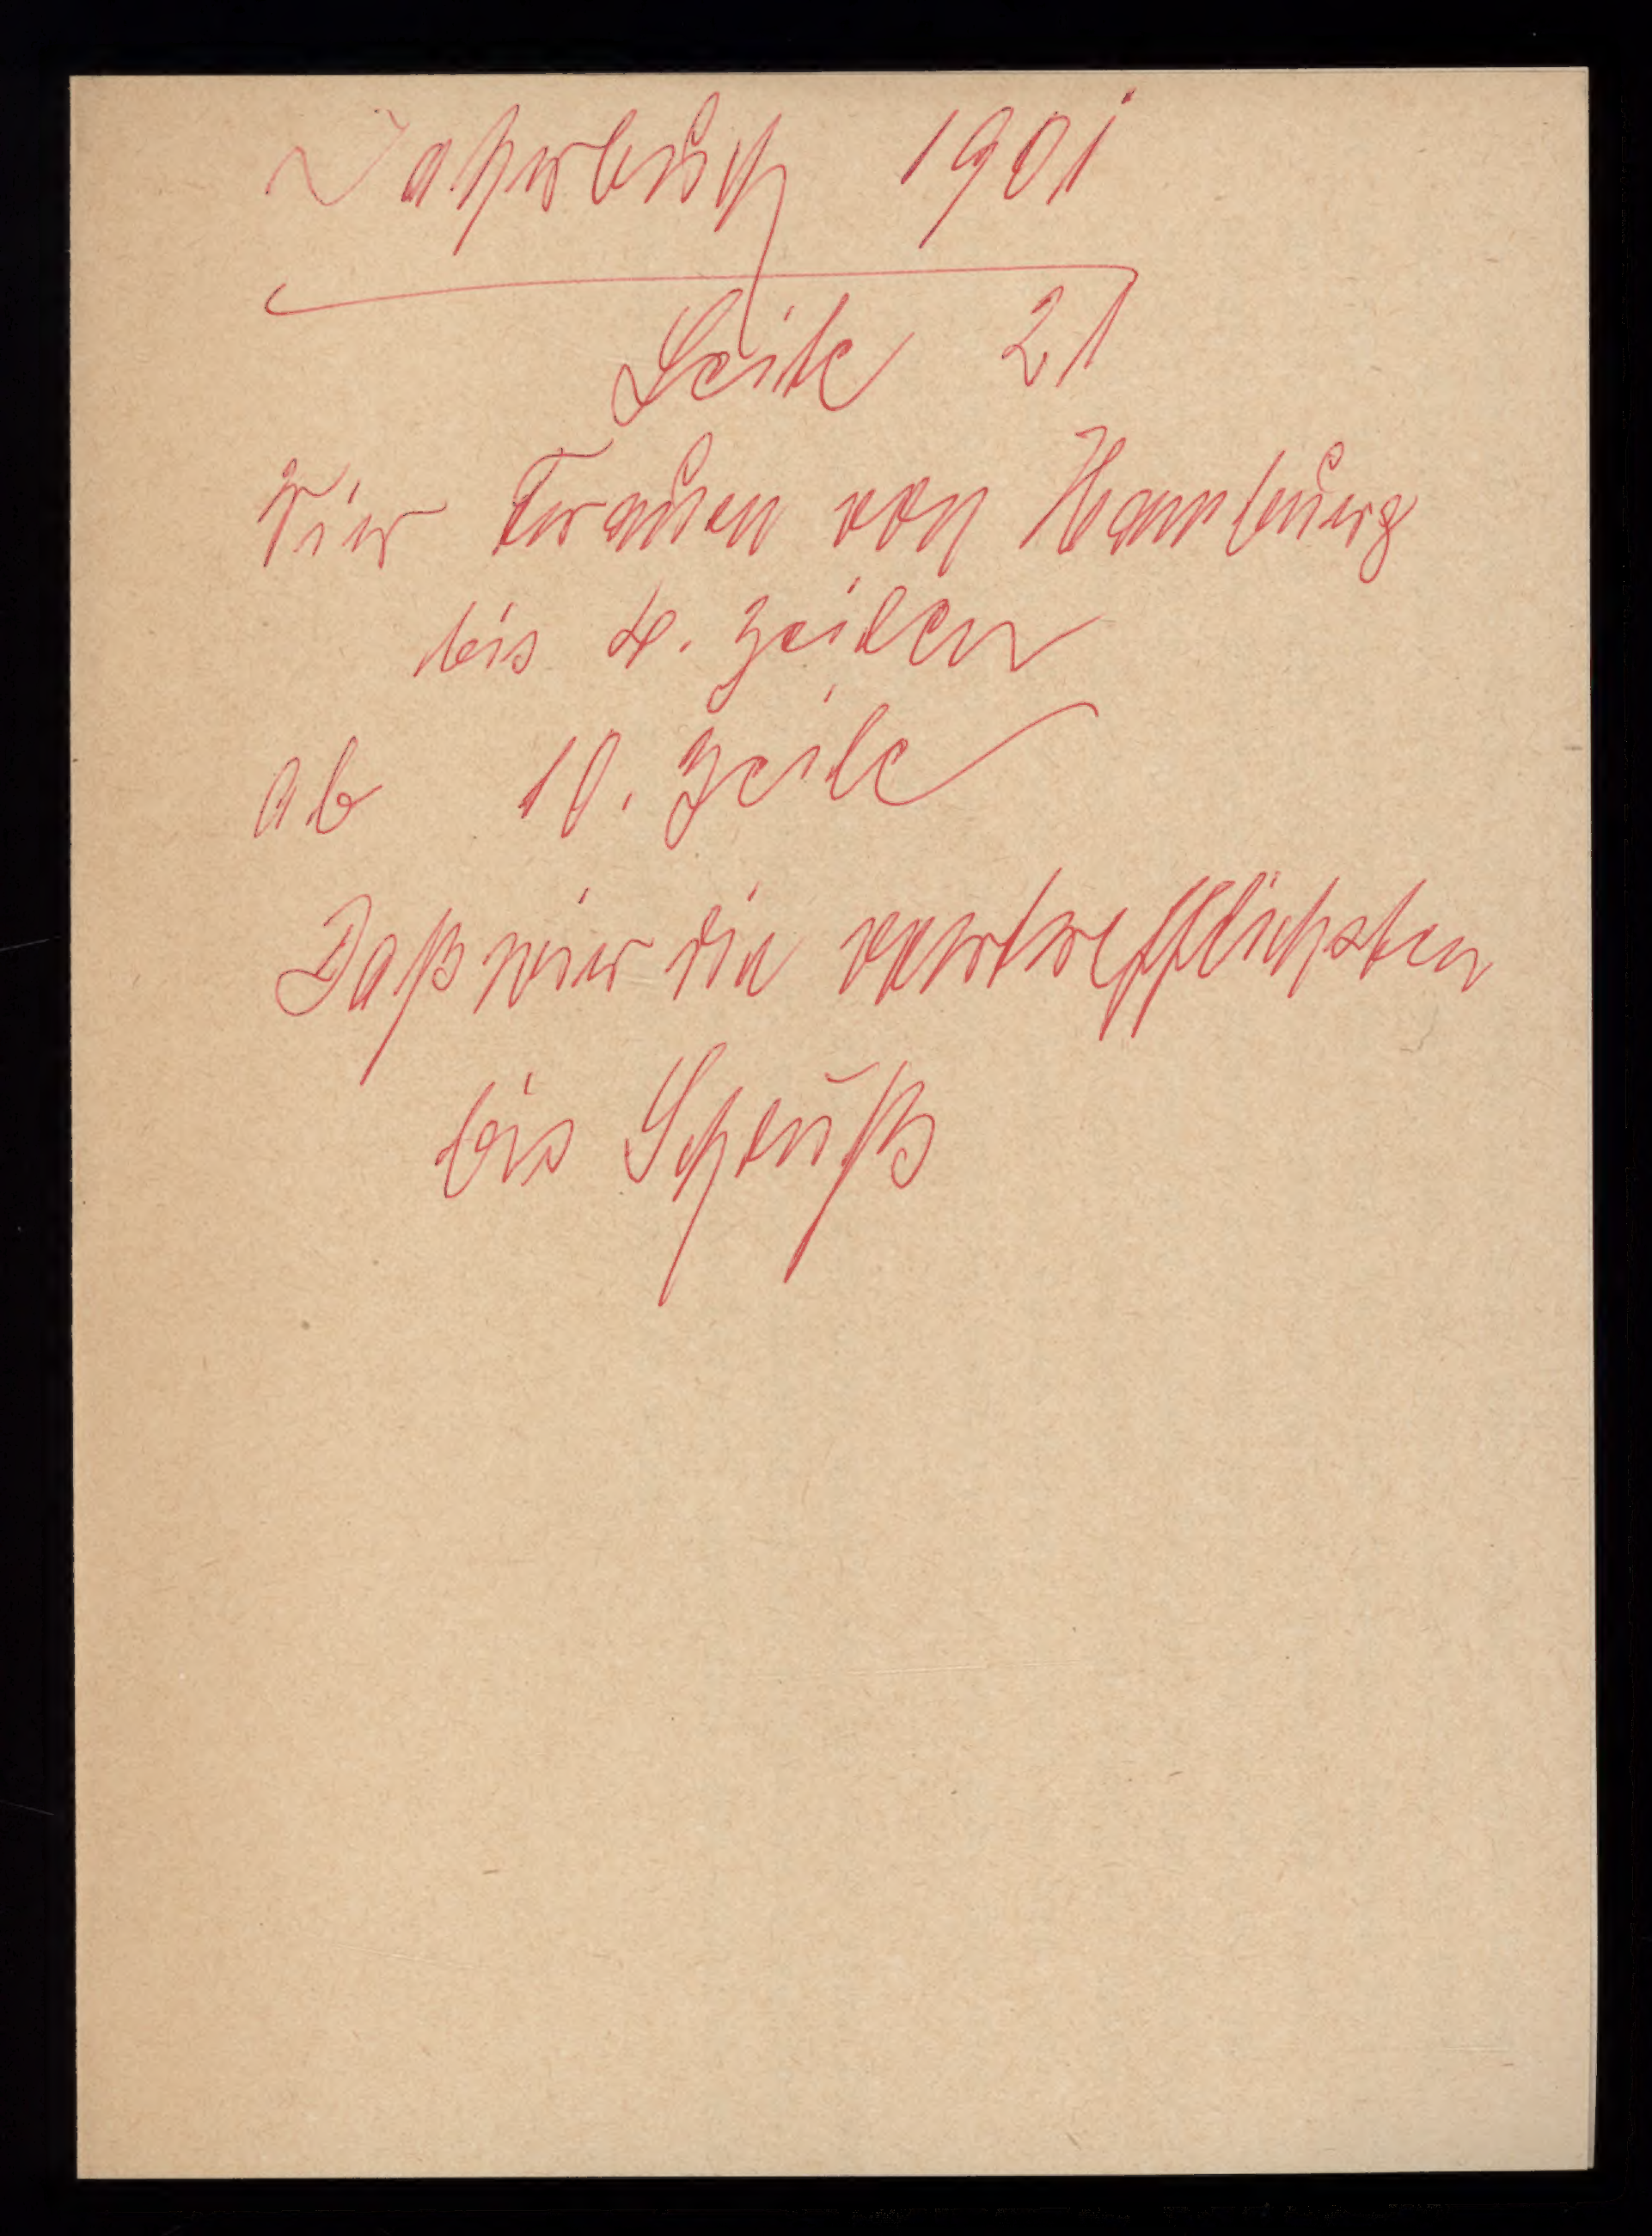 Jahrbuch 1901
Seite 21
Vier Frauen von Hamburg
bis 4. Zeilen
ab 10. Zeile
Daß wir die vortrefflichsten
bis Schluß